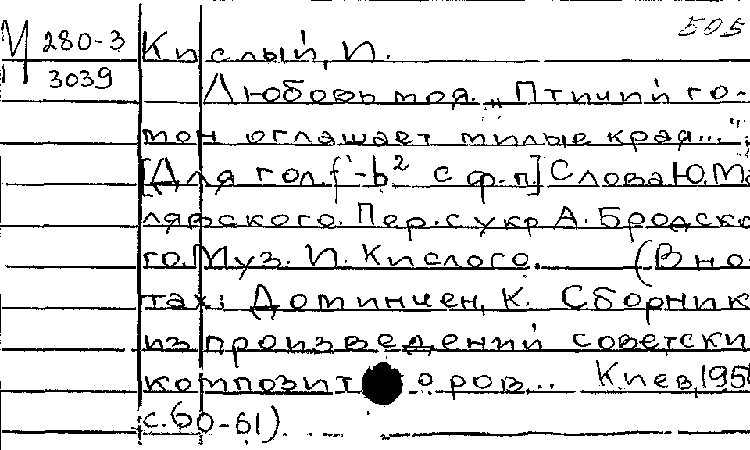 505
М 280-3
3039
Кислый, И.
Любовь моя. „Птичий го-
мон оглашает милые края...";
[Для гол. f'-b² с ф.п] Слова Ю. Ма
лявского. Пер. с укр А. Бродско
го. Муз. И. Кислого. (В но
тах: Доминчен, К. Сборник
из произведений советски
композиторов... Киев, 195
с. 60-61).